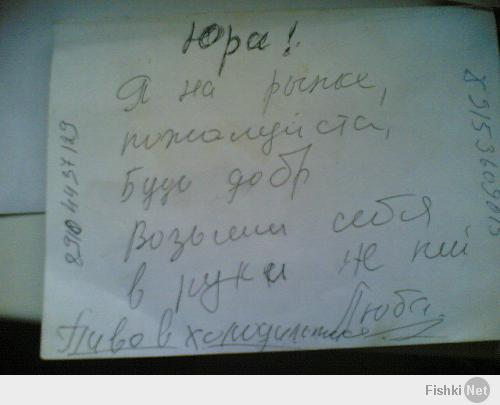 Юра!
Я на рынке,
пожалуйста,
Будь добр
Возьми себя
в руки не пей
Люба.
Пиво в холодильнике
Fishki.Net